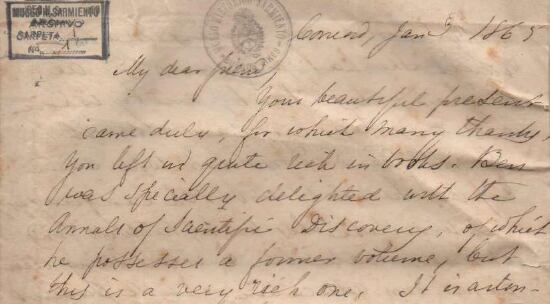 MUSEO H. SARMIENTO
ARCHIVO
CARPETA
No.
Concord, Jan 3 1865
My dear friend,
Your beautiful present
came duly, for which many thanks,
You left us quite rich in books. Ben
was specially delighted with the
Annals of Scientific Discovery, of which
he possesses a former volume, but
this is a very rich one. It is aston-